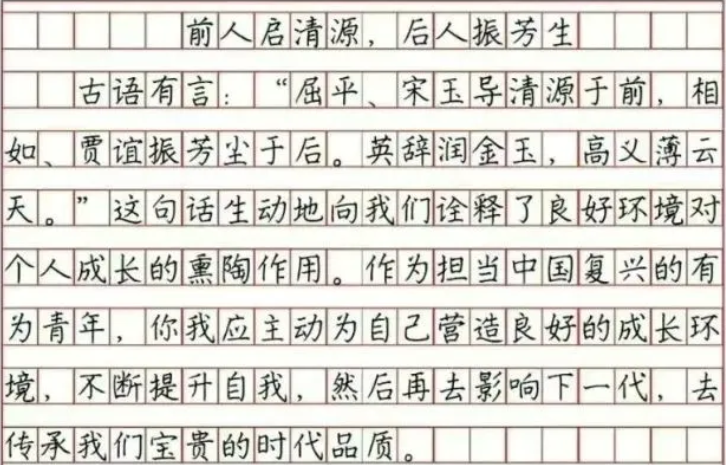 前人启清源，后人振芳生
古语有言：“屈平、宋玉导清源于前，相
如、贾谊振芳尘于后。英辞润金玉，高义薄云
天。”这句话生动地向我们诠释了良好环境对
个人成长的熏陶作用。作为担当中国复兴的有
为青年，你我应主动为自己营造良好的成长环
境，不断提升自我，然后再去影响下一代，去
传承我们宝贵的时代品质。